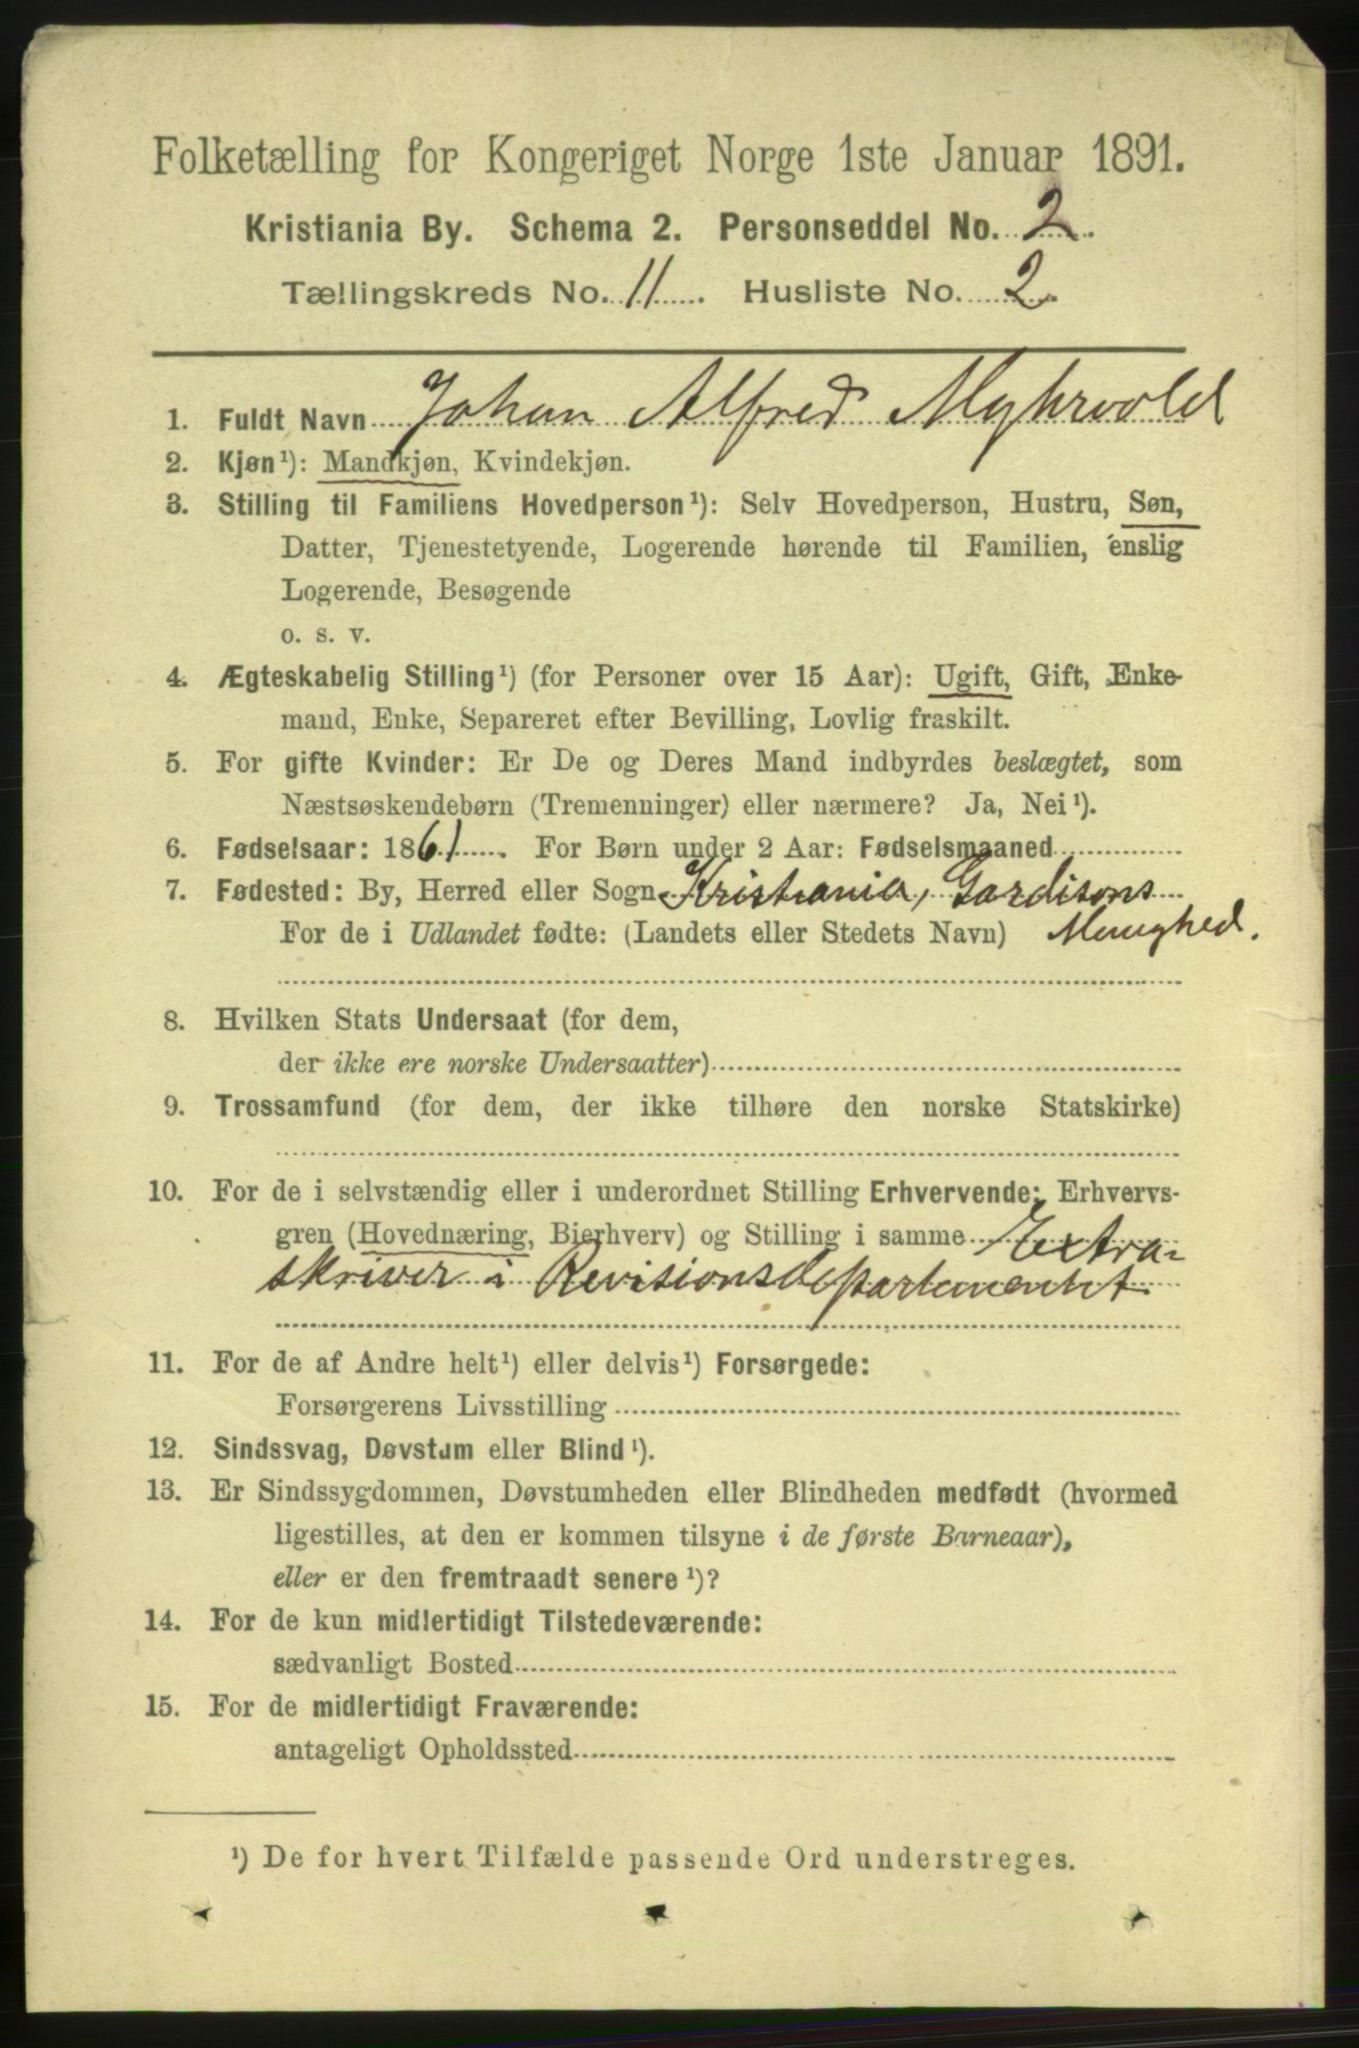 Folketælling for Kongeriget Norge 1ste Januar 1891.
Kristiania By. Schema 2. Personseddel No. 2.
Tællingskreds No. 11. Husliste No. 2.
1. Fuldt Navn Johan Alfred Myhrvold
2. Kjøn¹): Mandkjøn, Kvindekjøn.
3. Stilling til Familiens Hovedperson¹): Selv Hovedperson, Hustru, Søn,
Datter, Tjenestetyende, Logerende hørende til Familien, enslig
Logerende, Besøgende
o. s. v.
4. Ægteskabelig Stilling¹) (for Personer over 15 Aar): Ugift, Gift, Enke-
mand, Enke, Separeret efter Bevilling, Lovlig fraskilt.
5. For gifte Kvinder: Er De og Deres Mand indbyrdes beslægtet, som
Næstsøskendebørn (Tremenninger) eller nærmere? Ja, Nei¹).
6. Fødselsaar: 1861. For Børn under 2 Aar: Fødselsmaaned
7. Fødested: By, Herred eller Sogn Kristiania, Gardisons
For de i Udlandet fødte: (Landets eller Stedets Navn) Menighed.
8. Hvilken Stats Undersaat (for dem,
der ikke ere norske Undersaatter)
9. Trossamfund (for dem, der ikke tilhøre den norske Statskirke)
10. For de i selvstændig eller i underordnet Stilling Erhvervende: Erhvervs-
gren (Hovednæring, Bierhverv) og Stilling i samme Extra-
skriver i Revisionsdepartementet
11. For de af Andre helt¹) eller delvis¹) Forsørgede:
Forsørgerens Livsstilling
12. Sindssvag, Døvstum eller Blind¹).
13. Er Sindssygdommen, Døvstumheden eller Blindheden medfødt (hvormed
ligestilles, at den er kommen tilsyne i de første Barneaar),
eller er den fremtraadt senere¹)?
14. For de kun midlertidigt Tilstedeværende:
sædvanligt Bosted
15. For de midlertidigt Fraværende:
antageligt Opholdssted
¹) De for hvert Tilfælde passende Ord understreges.